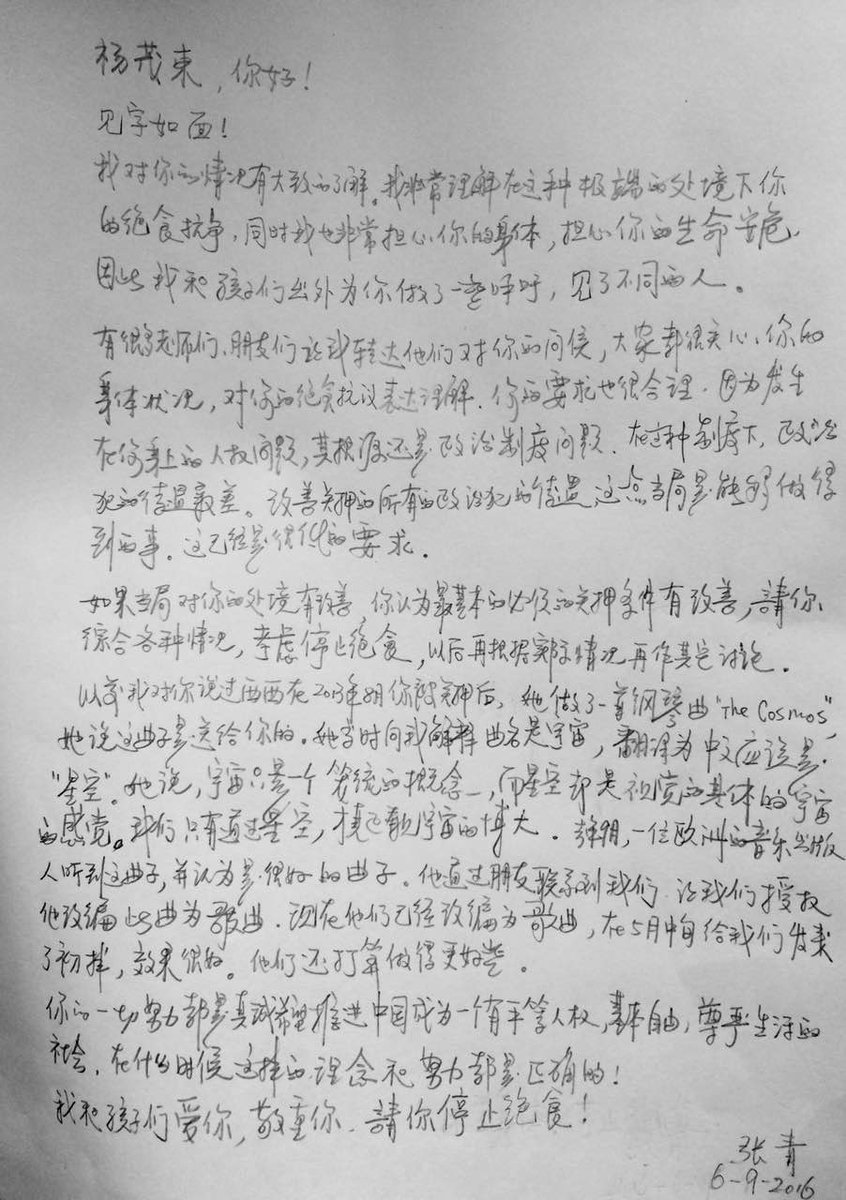 杨茂東,你好!
见字如面!
我对你的情况有大致的了解。我非常理解在这种极端的处境下你
的绝食抗争,同时我也非常担心你的身体,担心你的生命安危.
因此我和孩子们出外为你做了一些呼吁,见了不同的人。
有很多老师们、朋友们让我转达他们对你的问侯,大家都很关心你的
身体状况,对你的绝食抗议表达理解.你的要求也很合理.因为发生
在你身上的人权问题,其根源还是政治制度问题.在这种制度下,政治
犯的待遇最差。改善关押的所有的政治犯的待遇,这点当局是能够做得
到的事。这已经是很低的要求.
如果当局对你的处境有改善,你认为最基本的必须的关押条件有改善,請你
综合各种情况,考虑停止绝食,以后再根据实际情况再作其它讨论.
以前我对你说过西西在2013年8月你被关押后,她做了一首钢琴曲"The Cosmos",
她说这曲子是送给你的。她当时向我解释曲名是宇宙,翻译为中文应该是
"星空"。她说,宇宙只是一个笼统的概念,而星空却是视觉的具体的宇宙
的感觉。我们只有通过星空,才能宇宙的博大.,一位欧洲的音乐出版
人听到这曲子,并认为是很好的曲子。他通过朋友联系到我们,让我们授权
他改编此曲为歌曲.现在他们已经改编为歌曲,在5月中旬给我们发来
了初样,效果很好。他们还打算做得更好些。
你的一切努力都是真诚希望推进中国成为一个有平等人权,基本自由,尊严生活的
社会,在什么时候这样的理念和努力都是正确的!
我和孩子们爱你,敬重你.請你停止绝食!
张青
6-9-2016